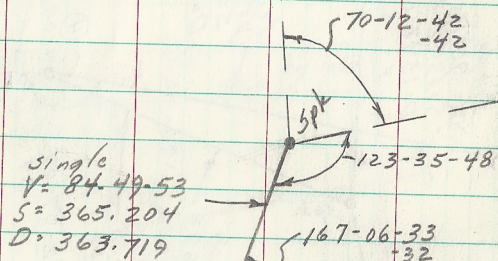 70-12-42
-42
Spk
-123-35-48
single
V= 84-49-53
S= 365.204
D= 363.719
167-06-33
-32